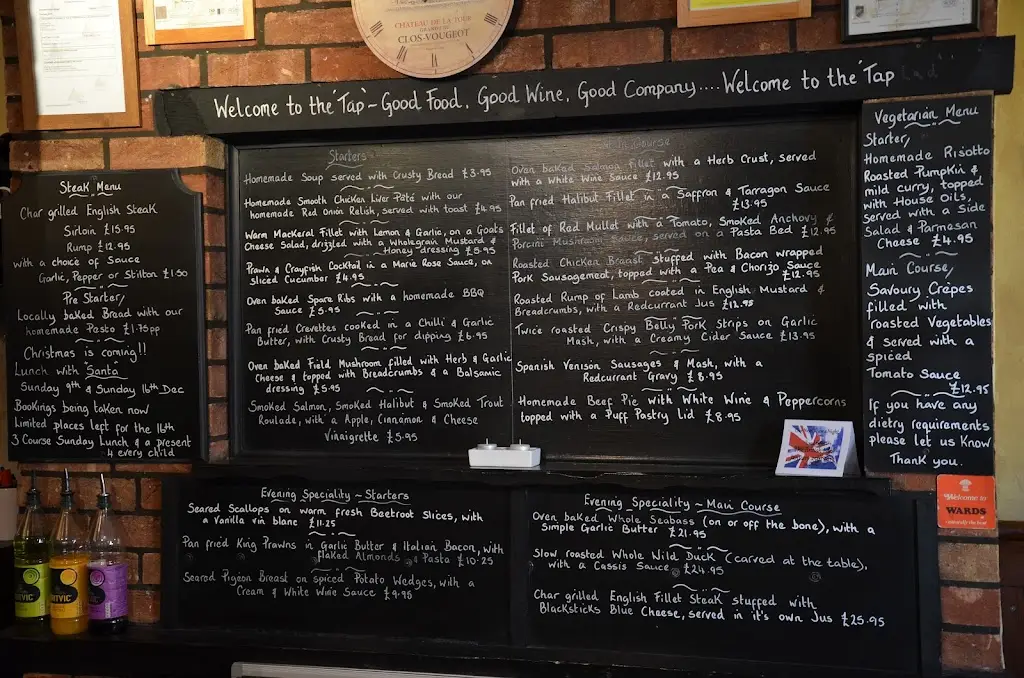 CHATEAU DE LA TOUR
CLOS-VOUGEOT
Welcome to the 'Tap' ~ Good Food, Good Wine, Good Company.... Welcome to the 'Tap
Steak Menu
Char grilled English Steak
Sirloin £15.95
Rump £12.95
with a choice of Sauce
Garlic, Pepper or Stilton £1.50
Pre Starter/
Locally baked Bread with our
homemade Pesto £1.75pp
Christmas is coming!!
Lunch with "Santa"
Sunday 9th & Sunday 16th Dec
Bookings being taken now
Limited places left for the 16th
3 Course Sunday Lunch & a present
4 every child
Starters
Homemade Soup served with Crusty Bread £3.95
Homemade Smooth Chicken Liver Pâté with our
homemade Red Onion Relish, served with toast £4.95
Warm Mackeral Fillet with Lemon & Garlic, on a Goats
Cheese Salad, drizzled with a Wholegrain Mustard &
Honey dressing £5.95
Prawn & Crayfish Cocktail in a Marie Rose Sauce, on
Sliced Cucumber £4.95
Oven baked Spare Ribs with a homemade BBQ
Sauce £5.95
Pan fried Crevettes cooked in a Chilli & Garlic
Butter, with Crusty Bread for dipping £6.95
Oven baked Field Mushroom filled with Herb & Garlic
Cheese & topped with Breadcrumbs & a Balsamic
dressing £5.95
Smoked Salmon, Smoked Halibut & Smoked Trout
Roulade, with a Apple, Cinnamon & Cheese
Vinaigrette £5.95
Course
Oven baked Salmon Fillet with a Herb Crust, served
with a White Wine Sauce £12.95
Pan fried Halibut Fillet in a Saffron & Tarragon Sauce
£13.95
Fillet of Red Mullet with a Tomato, Smoked Anchovy &
Porcini Mushroom Sauce, served on a Pasta Bed £12.95
Roasted Chicken Breast stuffed with Bacon wrapped
Pork Sausagemeat, topped with a Pea & Chorizo Sauce
£12.95
Roasted Rump of Lamb coated in English Mustard &
Breadcrumbs, with a Redcurrant Jus £12.95
Twice roasted Crispy Belly Pork Strips on Garlic
Mash, with a Creamy Cider Sauce £13.95
Spanish Venison Sausages & Mash, with a
Redcurrant Gravy £8.95
Homemade Beef Pie with White Wine & Peppercorns
topped with a Puff Pastry Lid £8.95
Vegetarian Menu
Starter/
Homemade Risotto
Roasted Pumpkin &
mild curry, topped
with House Oils,
Served with a Side
Salad & Parmesan
Cheese £4.95
Main Course/
Savoury Crêpes
filled with
roasted Vegetables
& served with a
spiced
Tomato Sauce
£12.95
If you have any
dietry requirements
please let us know
Thank you.
Welcome to
WARDS
Evening Speciality ~ Starters
Seared Scallops on warm fresh Beetroot Slices, with
a Vanilla vin blanc £11.25
Pan fried King Prawns in Garlic Butter & Italian Bacon, with
flaked Almonds & Pasta £10.25
Seared Pigeon Breast on spiced Potato Wedges, with a
Cream & White Wine Sauce £9.95
Evening Speciality ~ Main Course
Oven baked Whole Seabass (on or off the bone), with a
Simple Garlic Butter £21.95
Slow roasted Whole Wild Duck (carved at the table),
with a Cassis Sauce £24.95
Char grilled English Fillet Steak stuffed with
Blacksticks Blue Cheese, served in it's own Jus £25.95